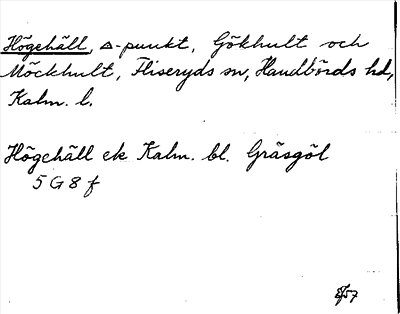 Högehäll, △-punkt, Gökhult och
Möckhult, Fliseryds sn, Handbörds hd,
Kalm. l.
Högehäll ek Kalm. bl. Gräsgöl
5 G 8 f